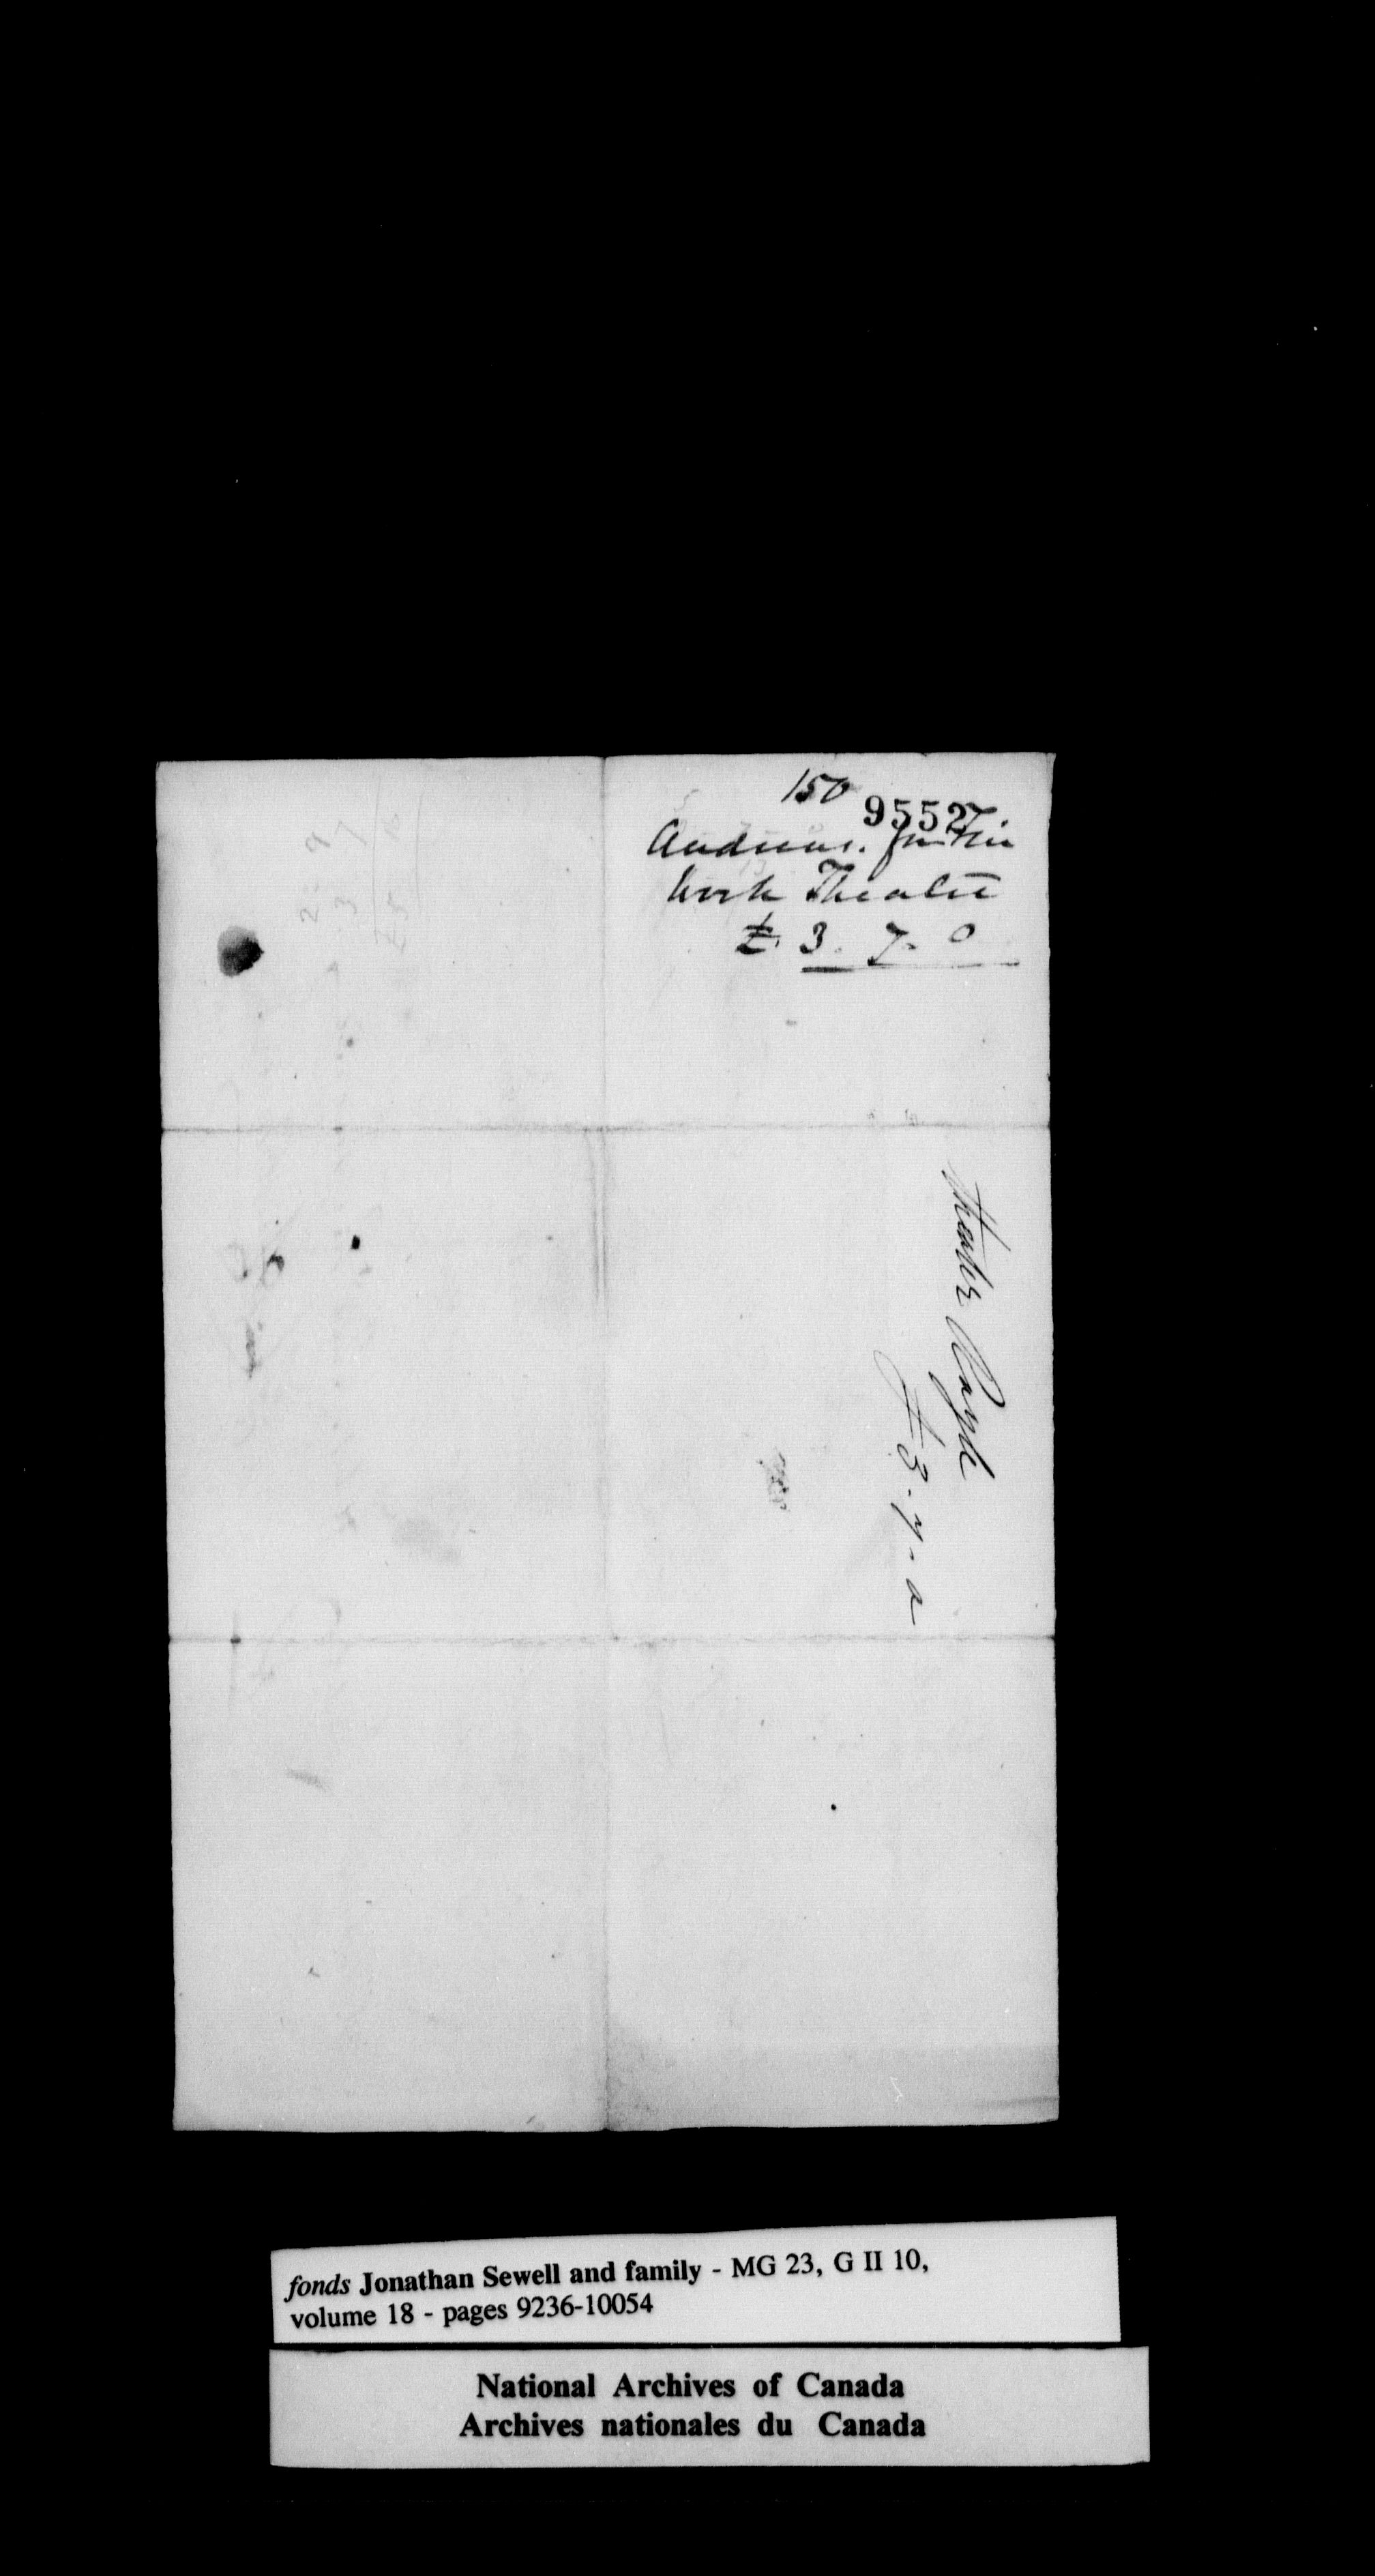 150
9552
Andrews. for Tin
work Theatre
£ 3. 7. 0
Theatre Royle
£ 3 - 7 - 0
2 9
3 7
£5 16
fonds Jonathan Sewell and family - MG 23, G II 10,
volume 18 - pages 9236-10054
National Archives of Canada
Archives nationales du Canada